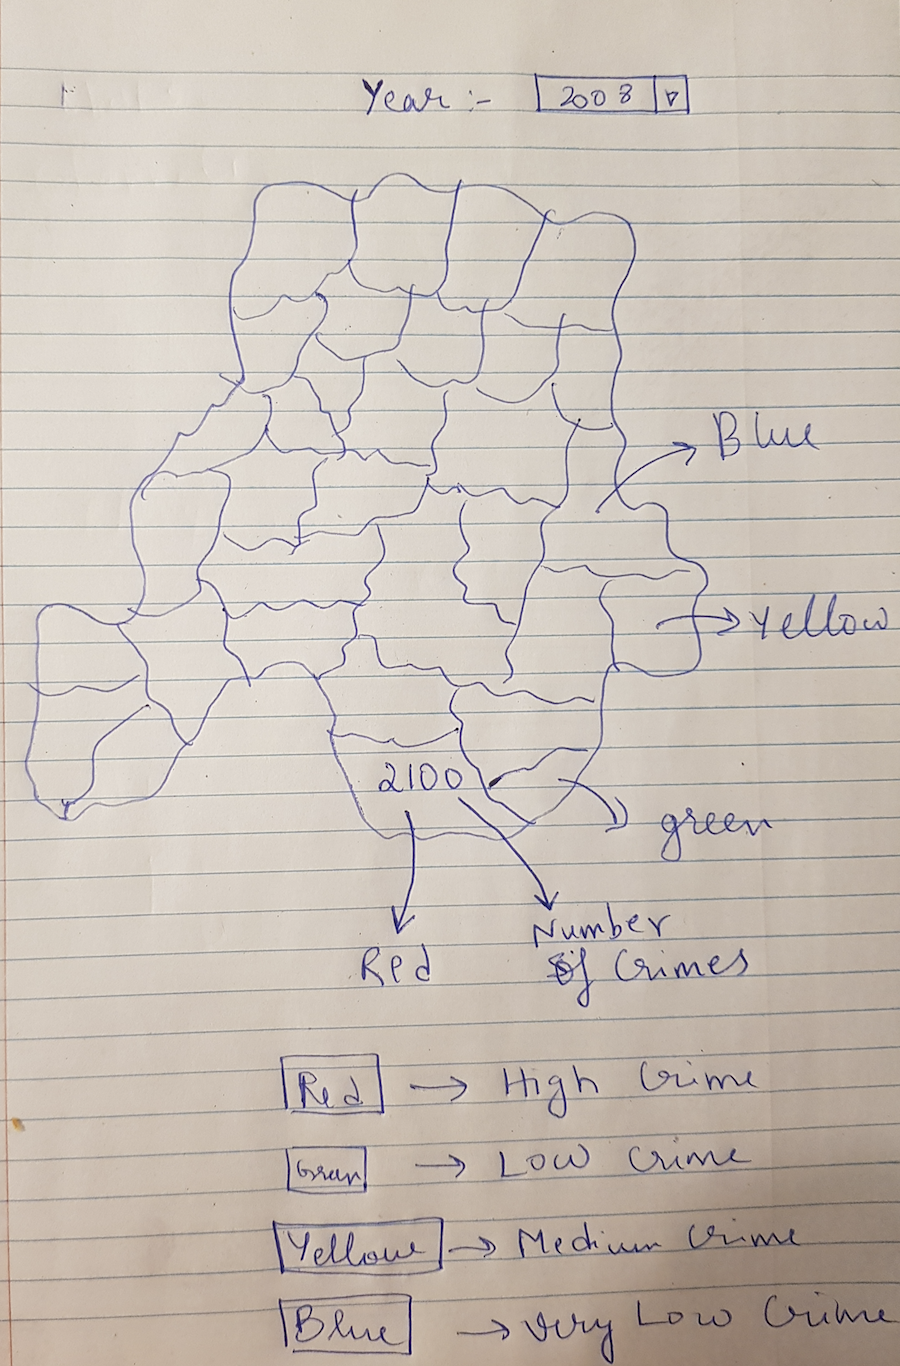 Year :- 2008
Blue
Yellow
2100
green
Number
of Crimes
Red
Red → High Crime
Green → Low Crime
Yellow → Medium Crime
Blue → Very Low Crime